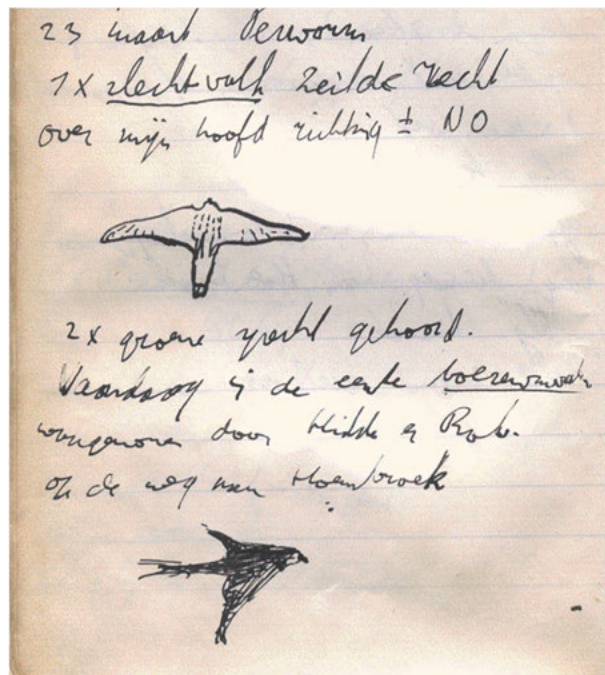 23 maart Terworm
1x slechtvalk zeilde recht
over mijn hoofd richting ± NO
2x groene specht gehoord.
Vandaag is de eerste boerenzwaluw
waargenomen door Hidde en Rob.
op de weg naar Hoensbroek